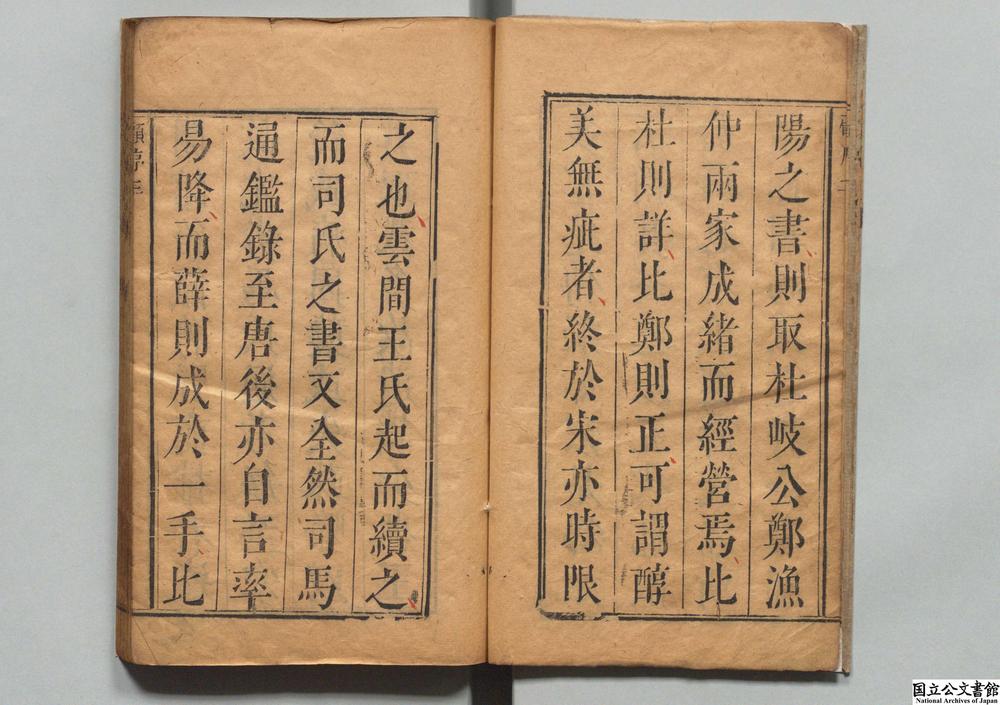 陽之書則取杜岐公鄭漁
仲兩家成緒而經營焉比
杜則詳比鄭則正可謂醇
美無疵者終於宋亦時限
之也雲間王氏起而續之
而司氏之書又全然司馬
通鑑錄至唐後亦自言率
易降而薛則成於一手比
國立公文書館
National Archives of Japan